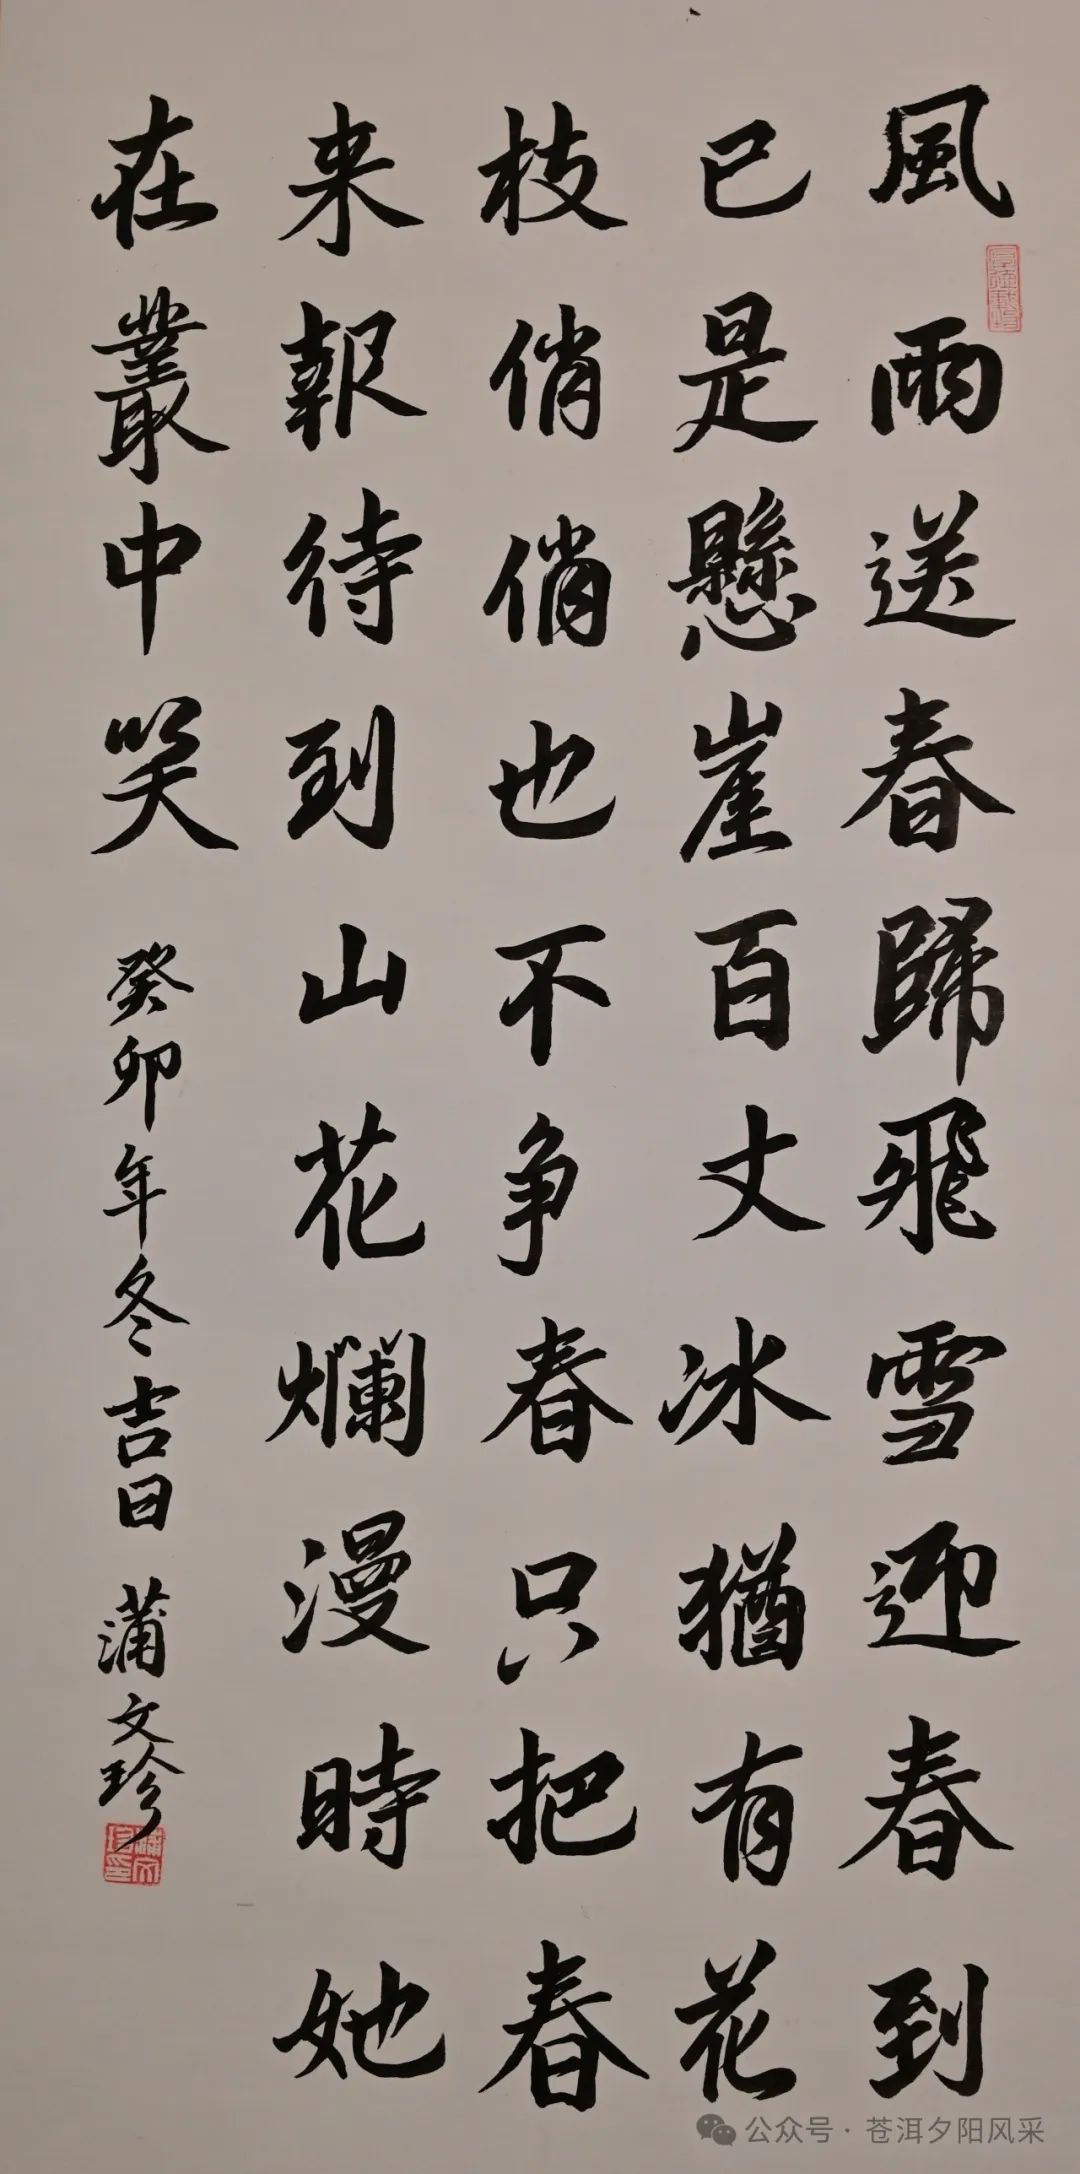 風雨送春歸飛雪迎春到
已是懸崖百丈冰猶有花
枝俏俏也不争春只把春
来報待到山花爛漫時她
在叢中笑
癸卯年冬吉日 蒲文珍
公众号·苍洱夕阳风采